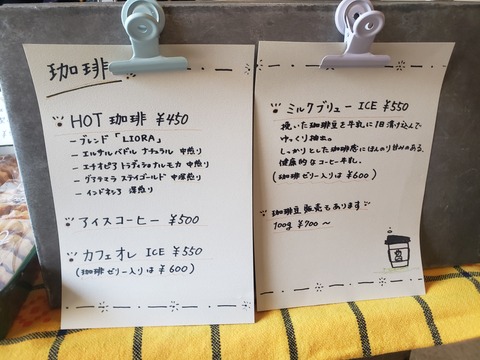 珈琲
HOT 珈琲 ¥450
- ブレンド「LIORA」 中煎り
- エルサルバドル ナチュラル 中煎り
- エチオピア トラディショナル モカ 中煎り
- グアテマラ スティゴールド 中深煎り
- インドネシア 深煎り
アイスコーヒー ¥500
カフェオレ ICE ¥550
(珈琲ゼリー入りは ¥600)
ミルクブリュー ICE ¥550
挽いた珈琲豆を牛乳に1日漬け込んで
ゆっくり抽出。
しっかりとした珈琲感にほんのり甘みのある、
健康的なコーヒー牛乳。
(珈琲ゼリー入りは ¥600)
珈琲豆 販売もあります
100g ¥700 〜